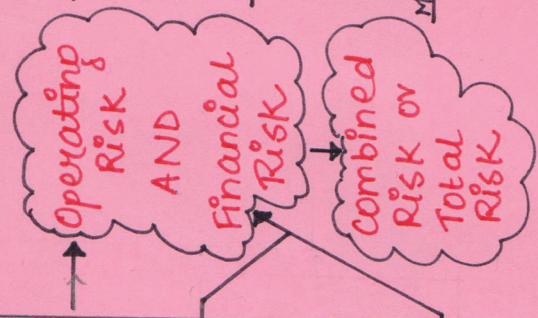 Operating
Risk
AND
Financial
Risk
Combined
Risk or
Total
Risk